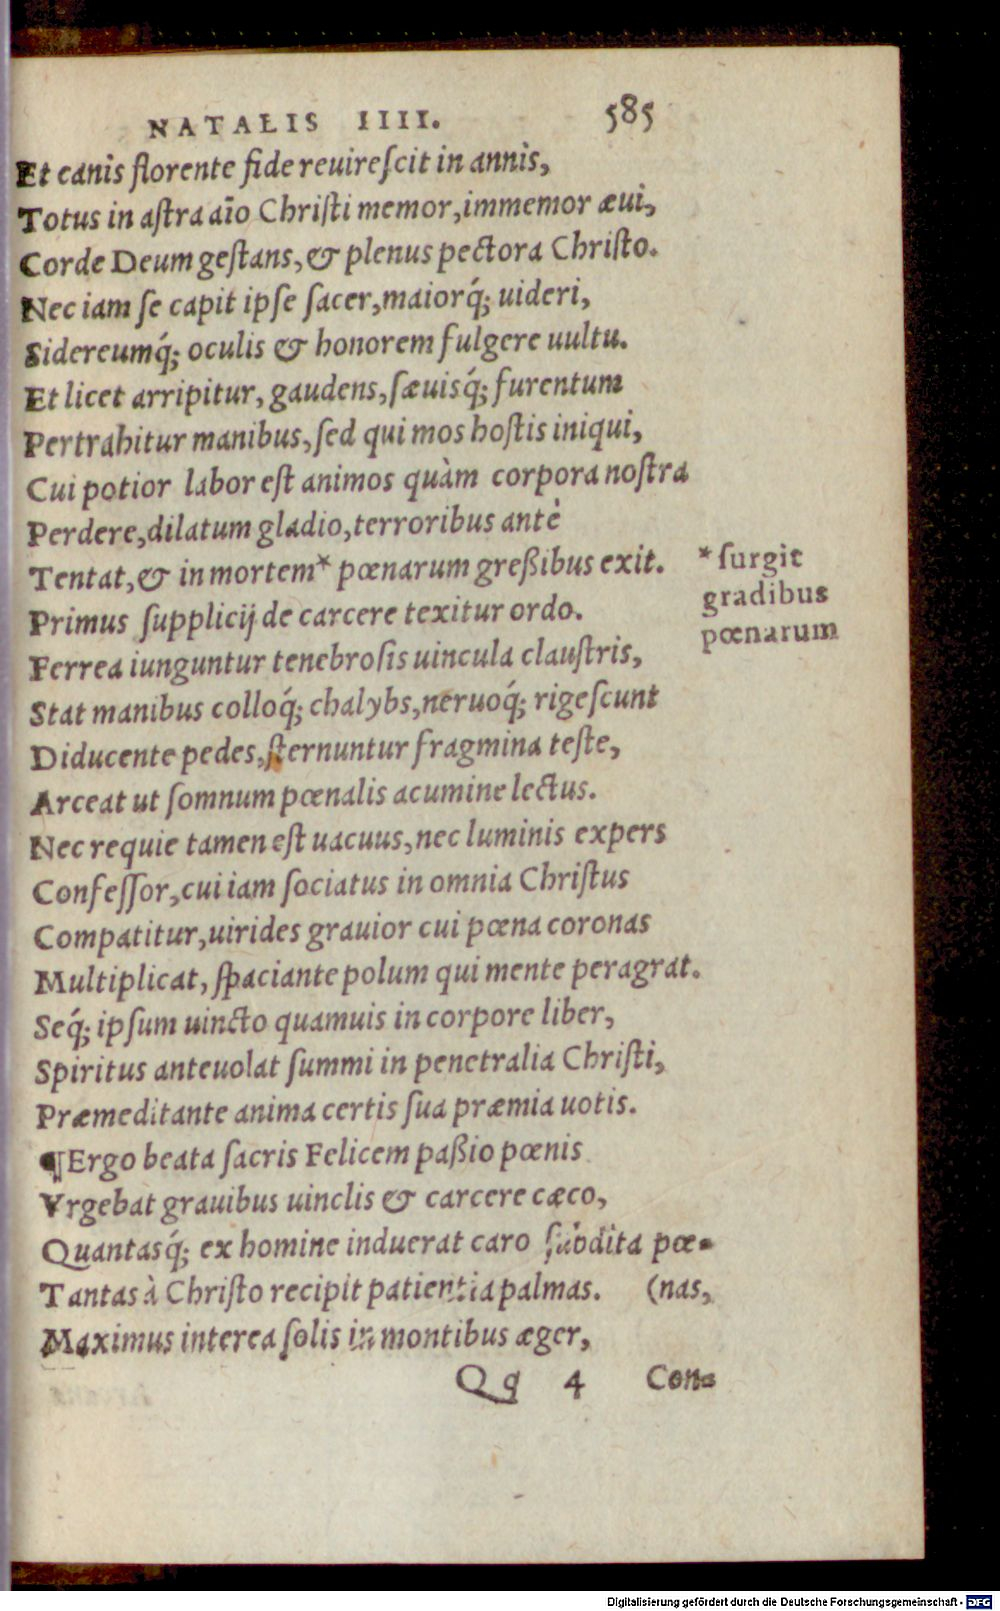 NATALIS IIII. 585
Et canis florente fide reuireſcit in annis,
Totus in aſtra aīo Chriſti memor, immemor æui,
Corde Deum geſtans, & plenus pectora Chriſto.
Nec iam ſe capit ipſe ſacer, maiorq́; uideri,
Sidereumq́; oculis & honorem fulgere uultu.
Et licet arripitur, gaudens, ſæuisq́; furentum
Pertrahitur manibus, ſed qui mos hoſtis iniqui,
Cui potior labor eſt animos quàm corpora noſtra
Perdere, dilatum gladio, terroribus antè
Tentat, & in mortem* pœnarum greßibus exit.
* ſurgit
gradibus
pœnarum
Primus ſupplicij de carcere texitur ordo.
Ferrea iunguntur tenebroſis uincula clauſtris,
Stat manibus colloq́; chalybs, neruoq́; rigeſcunt
Diducente pedes, ſternuntur fragmina teſte,
Arceat ut ſomnum pœnalis acumine lectus.
Nec requie tamen eſt uacuus, nec luminis expers
Confeſſor, cui iam ſociatus in omnia Chriſtus
Compatitur, uirides grauior cui pœna coronas
Multiplicat, ſpaciante polum qui mente peragrat.
Seq́; ipſum uincto quamuis in corpore liber,
Spiritus anteuolat ſummi in penetralia Chriſti,
Præmeditante anima certis ſua præmia uotis.
¶ Ergo beata ſacris Felicem paßio pœnis
Vrgebat grauibus uinclis & carcere cæco,
Quantasq́; ex homine induerat caro ſubdita pœ-
Tantas à Chriſto recipit patientia palmas. (nas,
Maximus interea ſolis in montibus æger,
Qq 4 Con-
Digitalisierung gefördert durch die Deutsche Forschungsgemeinschaft - DFG